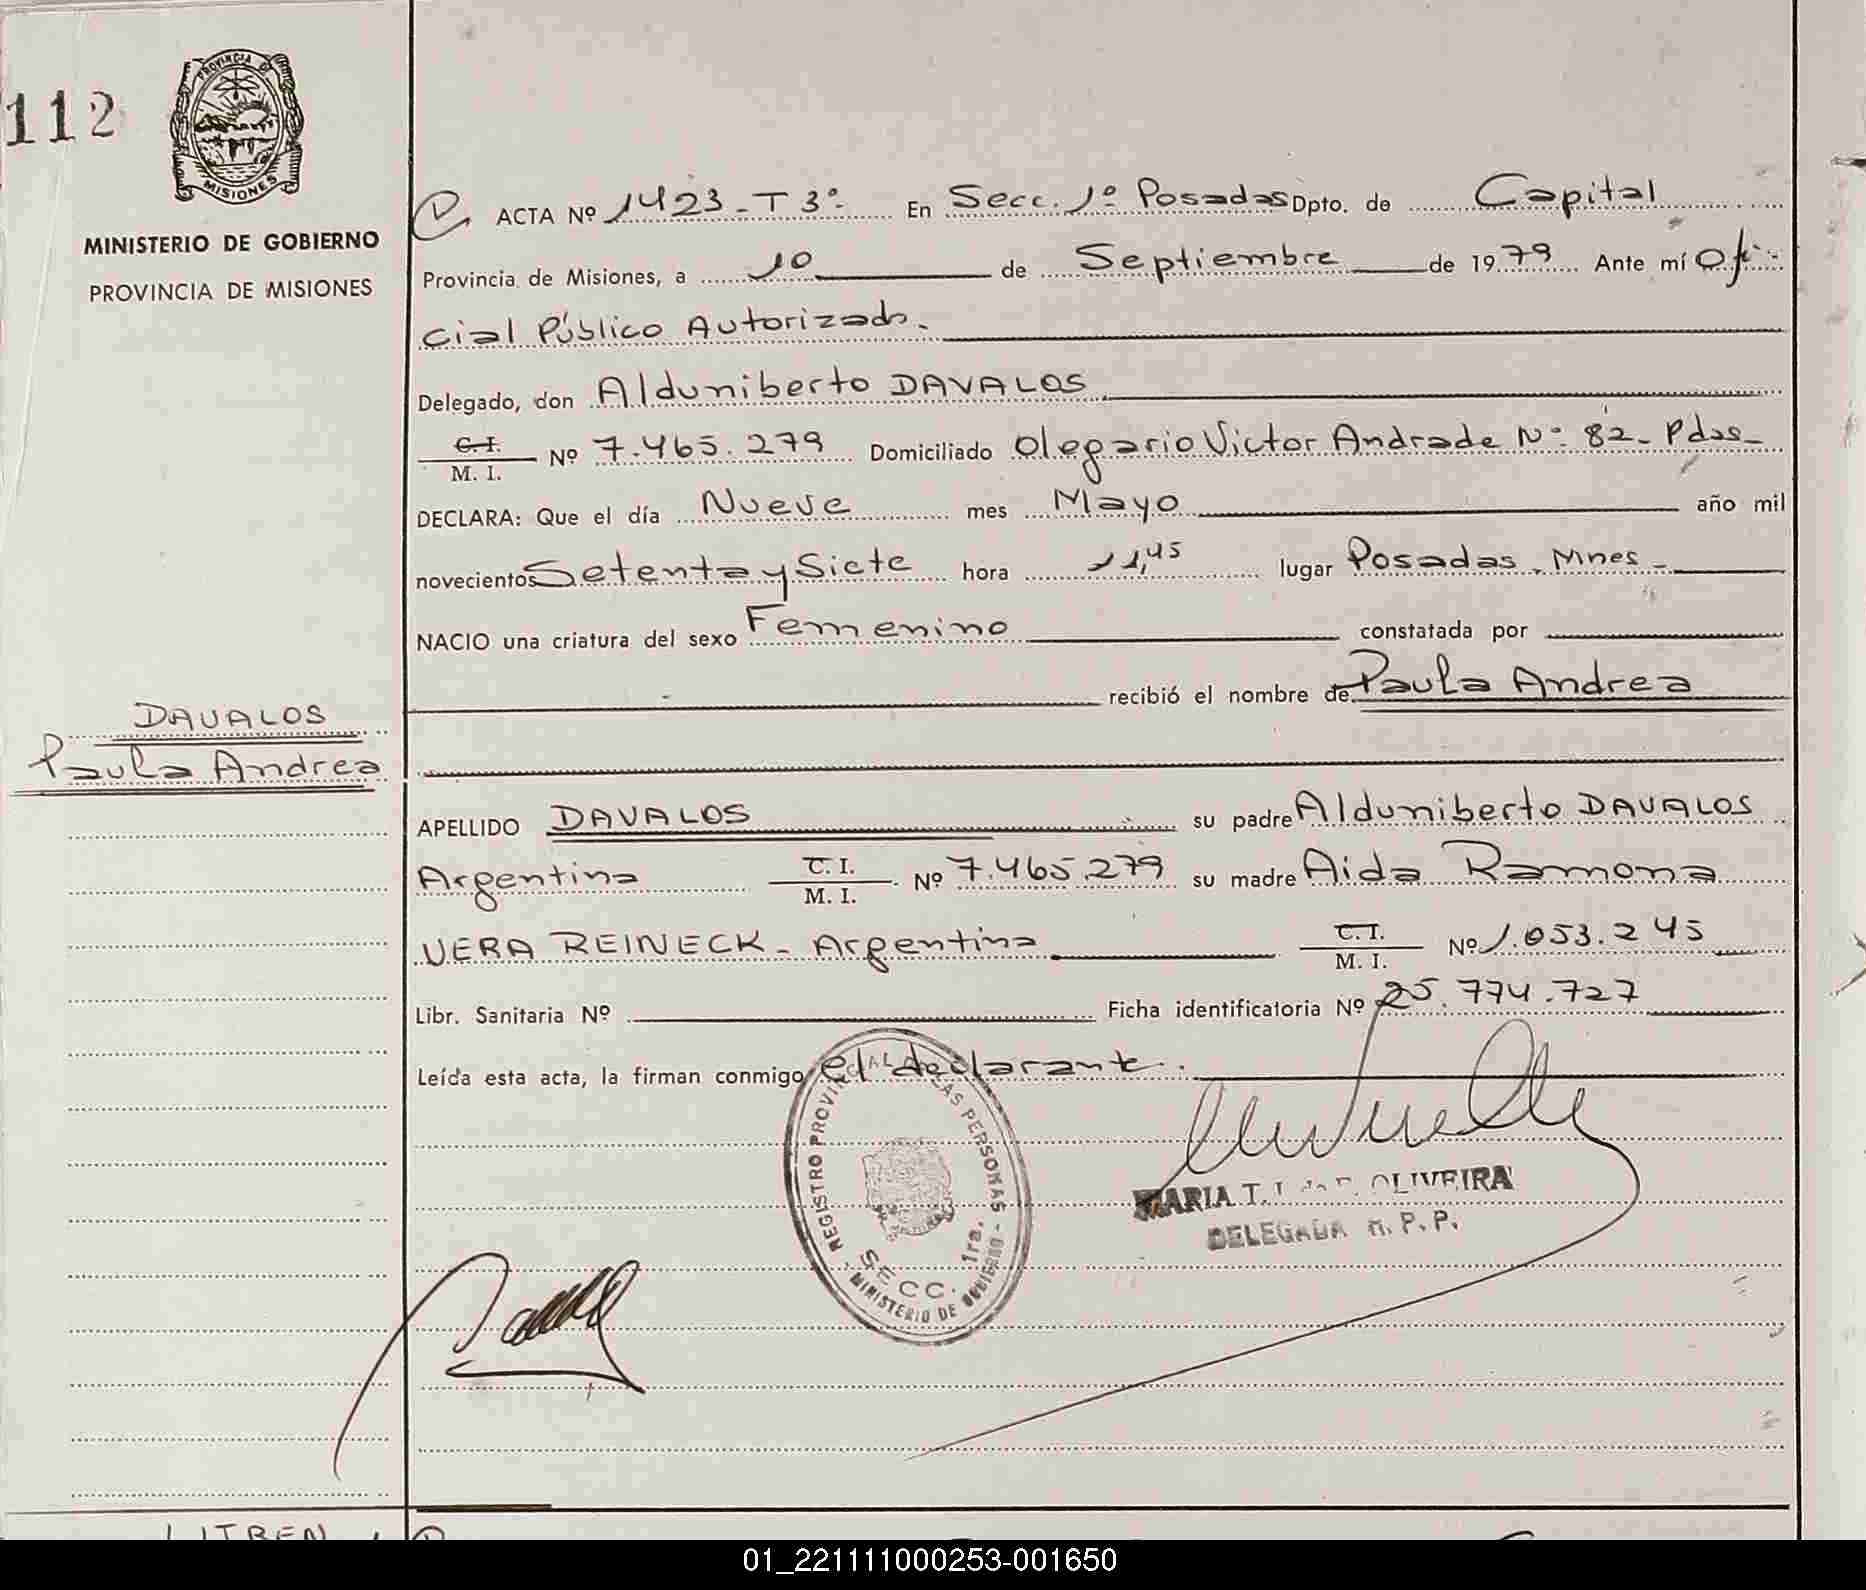 112
PROVINCIA DE
MISIONES
MINISTERIO DE GOBIERNO
PROVINCIA DE MISIONES
ACTA Nº 1423-T3º- En Secc. 1º Posadas Dpto. de Capital
Provincia de Misiones, a 10 de Septiembre de 1979 Ante mí Ofi-
cial Público Autorizado.
Delegado, don Alduniberto DAVALOS
C.I.
M. I. Nº 7.465.279 Domiciliado Olegario Victor Andrade Nº 82- Pdas-
DECLARA: Que el día Nueve mes Mayo año mil
novecientos Setenta y Siete hora 11,45 lugar Posadas, Mnes-
NACIO una criatura del sexo Femenino constatada por
recibió el nombre de Paula Andrea
DAVALOS
Paula Andrea
APELLIDO DAVALOS su padre Alduniberto DAVALOS
Argentina C. I.
M. I. Nº 7.465.279 su madre Aida Ramona
VERA REINECK- Argentina C.I.
M. I. Nº 1.053.245
Libr. Sanitaria Nº Ficha identificatoria Nº 25.774.727
Leída esta acta, la firman conmigo el declarante.
REGISTRO PROVINCIAL DE LAS PERSONAS -
SECC. 1ra.
MINISTERIO DE GOBIERNO -
MARIA T. OLIVEIRA
DELEGADA R. P. P.
01_221111000253-001650